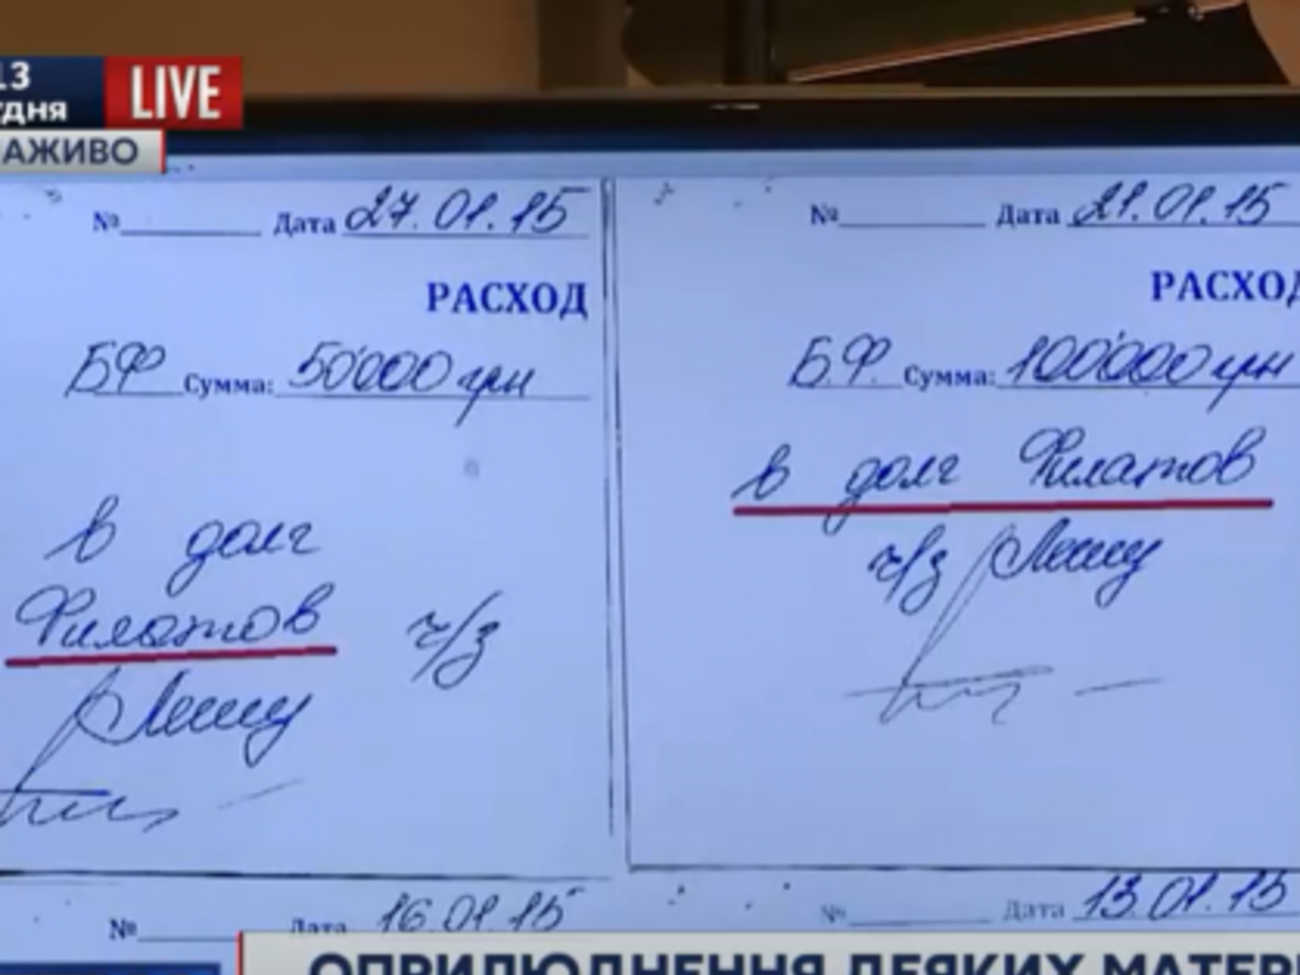 13
LIVE
АЖИВО
№ Дата 27.01.15
РАСХОД
БФ Сумма: 50'000 грн
в долг
Филатов ч/з
Лешу
№ Дата 21.01.15
РАСХОД
Б.Ф. Сумма: 100'000 грн
в долг Филатов
ч/з Лешу
№ Дата 16.01.15
№ Дата 13.01.15
ОПРИЛЮДНЕННЯ ДЕЯКИХ МАТЕРІ